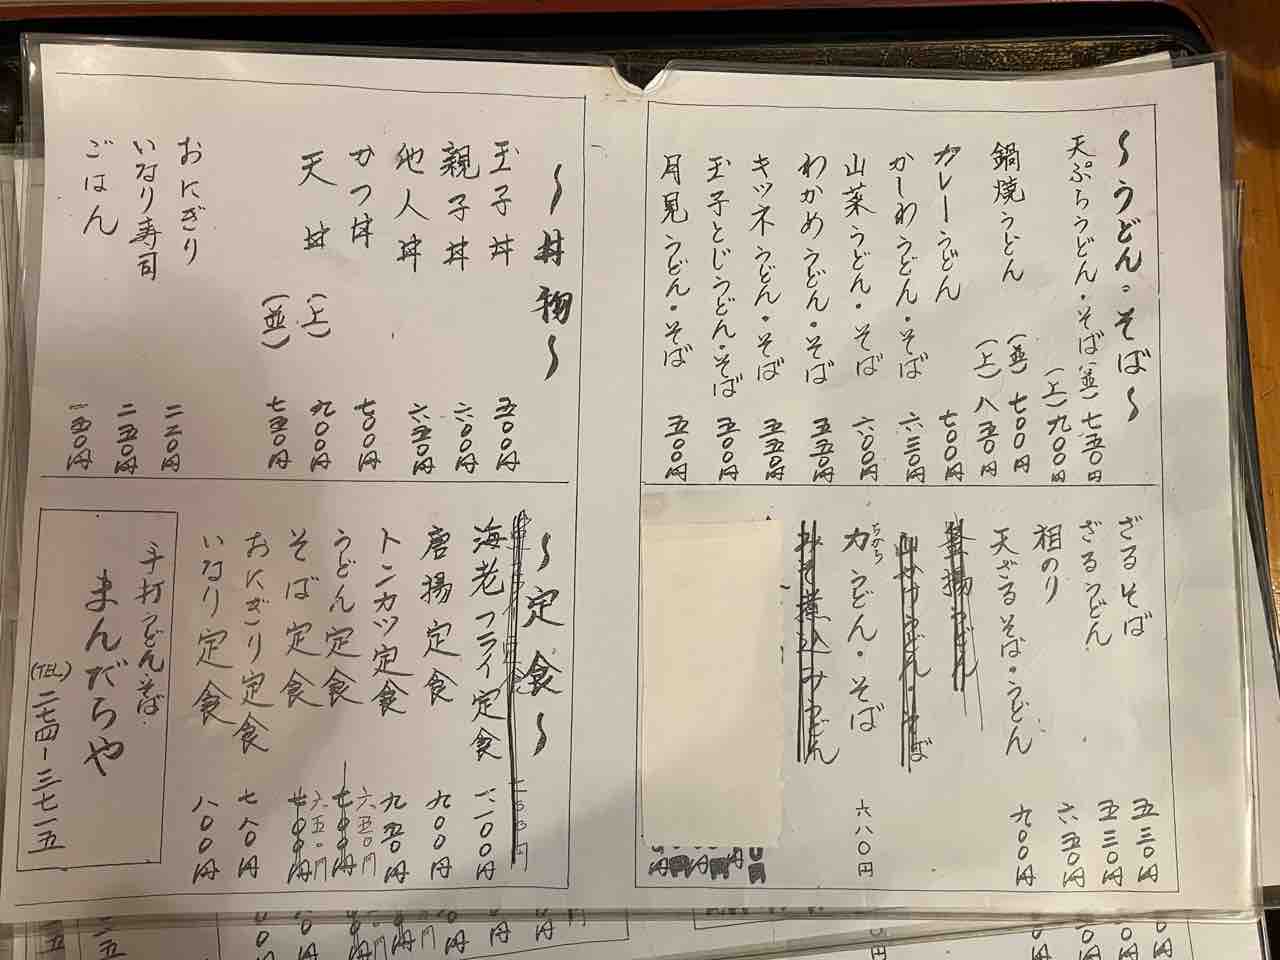 ～うどん・そば～
天ぷらうどん・そば(並)七五〇円
(上)九〇〇円
鍋焼うどん (並)七〇〇円
(上)八五〇円
カレーうどん 七〇〇円
かしわうどん・そば 六三〇円
山菜うどん・そば 六〇〇円
わかめうどん・そば 五五〇円
キツネうどん・そば 五五〇円
玉子とじうどん・そば 五〇〇円
月見うどん・そば 五〇〇円
～丼物～
玉子丼 五〇〇円
親子丼 六〇〇円
他人丼 六五〇円
かつ丼 七〇〇円
天丼 (上) 九〇〇円
(並) 七五〇円
おにぎり 二二〇円
いなり寿司 二五〇円
ごはん 一五〇円
ざるそば 五三〇円
ざるうどん 五三〇円
相のり 六五〇円
天ざるそば・うどん 九〇〇円
釜揚うどん
うどん・そば
ちから
力うどん・そば 六八〇円
みそ煮込みうどん
～定食～
海老フライ定食 一二〇〇円
唐揚定食 九〇〇円
トンカツ定食 九五〇円
うどん定食 六五〇円
七〇〇円
そば定食 六五〇円
七〇〇円
おにぎり定食 七八〇円
いなり定食 八〇〇円
手打うどん・そば
まんだらや
(TEL)二七四-三七一五